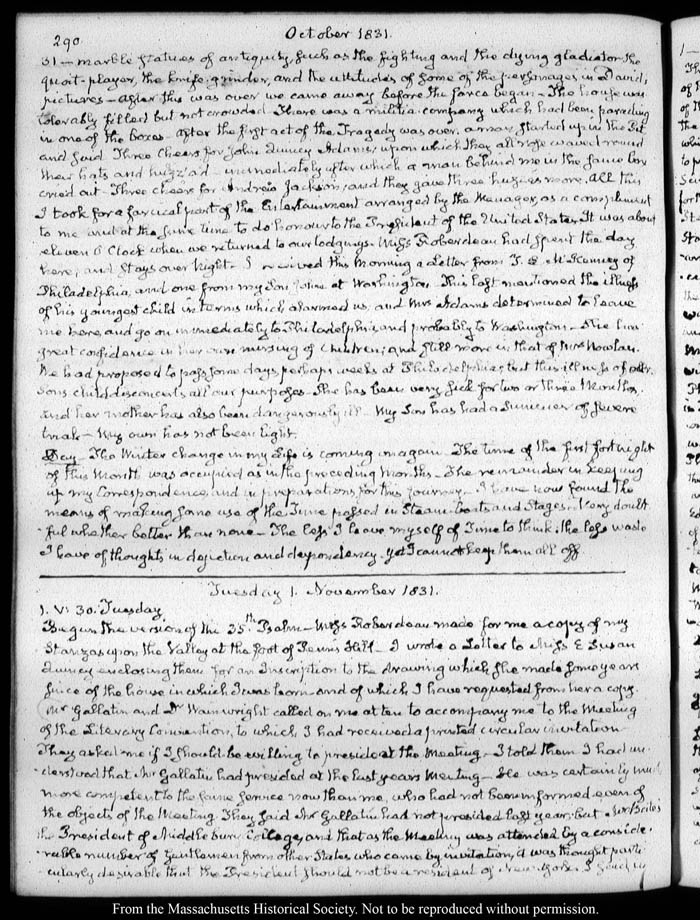 290
October 1831.
31 — marble statues of antiquity, such as the fighting and the dying gladiator the
quoit-player, the knife-grinder, and the attitudes of some of the personages in David's
pictures — After this was over we came away before the farce began — The house was
tolerably filled but not crowded. There was a militia company which had been parading
in one of the boxes. After the first act of the Tragedy was over, a man started up in the Pit
and said Three Cheers for John Quincy Adams, upon which they all rose waved round
their hats and huzza'd — immediately after which a man behind me in the same box
cried out Three cheers for Andrew Jackson, and they gave three huzzas more. All this
I took for a farcical part of the Entertainment arranged by the Manager, as a compliment
to me and at the same time to do honour to the President of the United States. It was about
eleven O'Clock when we returned to our lodgings. Miss Roberdeau had spent the day
here, and stays over Night. I received this Morning a Letter from T. L. McKenney of
Philadelphia, and one from my Son John at Washington. This last mentioned the illness
of his youngest child in terms which alarmed us, and Mrs Adams determined to leave
me here, and go on immediately to Philadelphia and probably to Washington. She has
great confidence in her own nursing of Children; and still more in that of Mrs Nowlan.
We had proposed to pass some days, perhaps weeks at Philadelphia, but this illness of our
Sons child disconcerts all our purposes. She has been very sick for two or three Months,
and her mother has also been dangerously ill — My Son has had a Summer of severe
trials — My own has not been light.
Day — The Winter change in my Life is coming on again. The time of the first fortnight
of this Month was occupied as in the preceding Months. The remainder in keeping
up my Correspondence, and in preparations for this journey. I have now found the
means of making some use of the Time passed in Steam-boats and Stages. Very doubt
ful whether better than none — The less I leave myself of Time to think, the less waste
I have of thoughts in dejection and despondency. Yet I cannot keep them all off.
Tuesday 1. November 1831.
1. V: 30. Tuesday
Begun the version of the 35th Psalm — Miss Roberdeau made for me a copy of my
Stanzas upon the Valley at the foot of Penns Hill — I wrote a Letter to Miss E Susan
Quincy enclosing them for an Inscription to the drawing which she made some years
since of the house in which I was born and of which I have requested from her a copy.
Mr Gallatin and Dr Wainwright called on me at ten to accompany me to the Meeting
of the Literary Convention, to which I had received a printed circular invitation
They asked me if I should be willing to preside at the Meeting — I told them I had un
derstood that Mr Gallatin had presided at the last years Meeting — He was certainly much
more competent to the same service now than me, who had not been informed even of
the objects of the Meeting. They said Mr Gallatin had not presided last year, but Mr Bates
the President of Middlebury College, and that as the Meeting was attended by a conside
rable number of Gentlemen from other States who came by invitation, it was thought parti
cularly desirable that the President should not be a resident of New-York. I said
From the Massachusetts Historical Society. Not to be reproduced without permission.